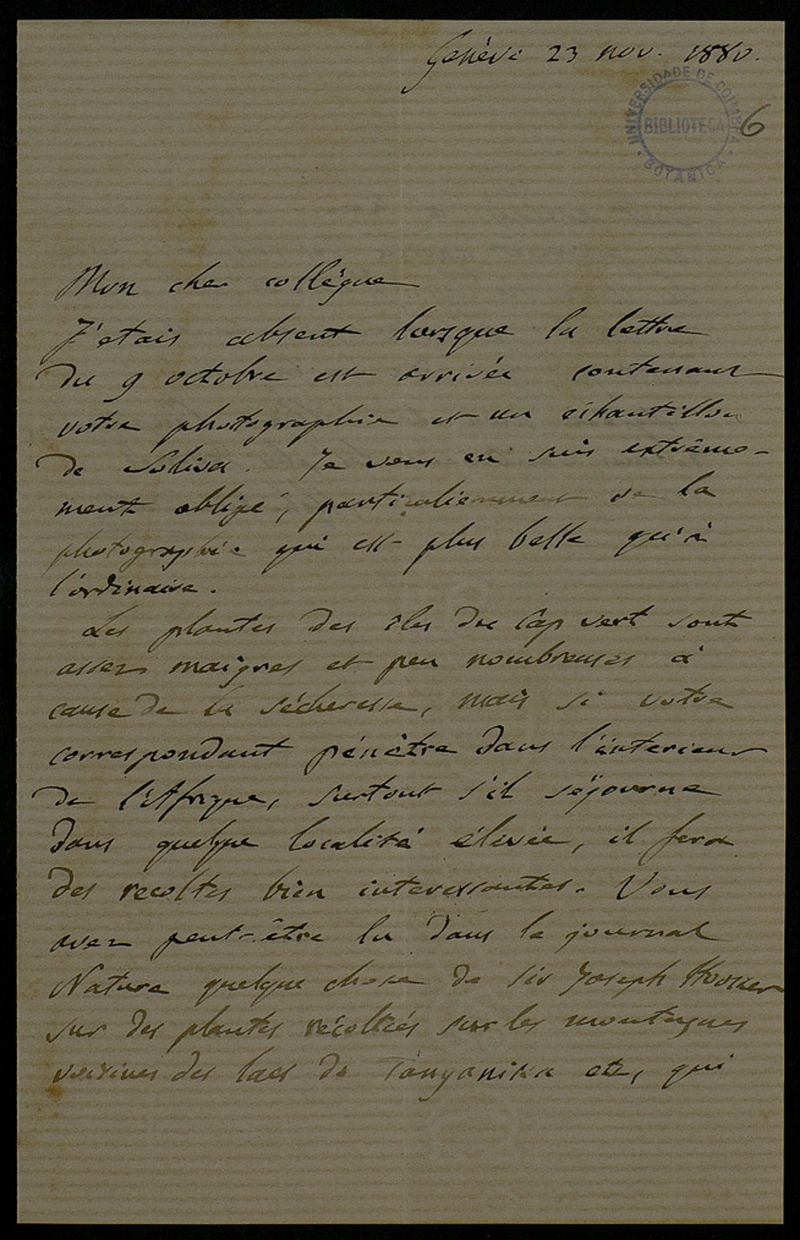 Genève 23 nov. 1880.
UNIVERSIDADE DE COIMBRA
BIBLIOTECA
BOTANICA
6
Mon cher collègue
J'etais absent lorsque la lettre
du 9 octobre est arrivée contenant
votre photographie et un échantillon
de Soliva. Je vous en suis extrême-
ment obligé, particulierement de la
photographie qui est plus belle qu'à
l'ordinaire.
Les plantes des iles du Cap vert sont
assez maigres et peu nombreuses à
cause de la sécheresse, mais si votre
correspondant pénètre dans l'interieur
de l'Afrique, surtout s'il séjourne
dans quelque localité élevée, il fera
des recoltes bien interessantes. Vous
avez peut-être lu dans le journal
Nature quelque chose de sir Joseph Hooker
sur des plantes récoltées sur les montagnes
voisines des lacs de Tanganika etc, qui